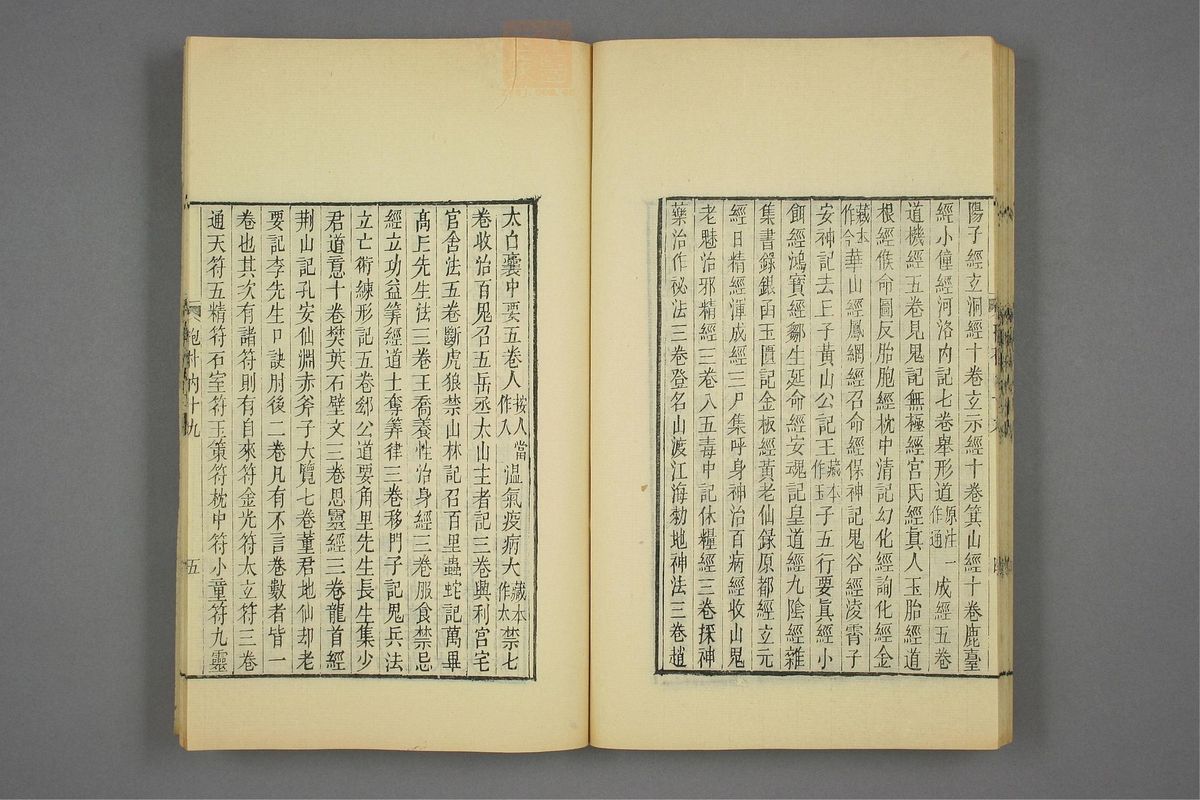 陽子經立洞經十卷立示經十卷箕山經十卷鹿臺
經小僮經河洛內記七卷舉形道原注作通一成經五卷
道機經五卷見鬼記無極經宮氏經真人玉胎經道
根經候命圖反胎胞經枕中清記幻化經詢化經金
藏本作今華山經鳳網經召命經保神記鬼谷經淩霄子
安神記去丘子黃山公記王藏本作玉子五行要真經小
餌經鴻寶經鄒生延命經安魂記皇道經九陰經雜
集書錄銀函玉匱記金板經黃老仙錄原都經立元
經日精經渾成經三尸集呼身神治百病經收山鬼
老魅治邪精經三卷八五毒中記休糧經三卷採神
藥治作祕法三卷登名山渡江海勑地神法三卷趙
太白囊中要五卷人按人當作入溫氣疫病大藏本作太禁七
卷收治百鬼召五岳丞太山主者記三卷興利宮宅
官舍法五卷斷虎狼禁山林記召百里蟲蛇記萬畢
高丘先生法三卷王喬養性治身經三卷服食禁忌
經立功益筭經道士奪筭律三卷移門子記鬼兵法
立亡術練形記五卷郄公道要角里先生長生集少
君道意十卷樊英石壁文三卷思靈經三卷龍首經
荆山記孔安仙淵赤斧子大覽七卷董君地仙却老
要記李先生口訣肘後二卷凡有不言卷數者皆一
卷也其次有諸符則有自來符金光符太立符三卷
通天符五精符石室符玉策符枕中符小童符九靈
抱朴 內十九
五